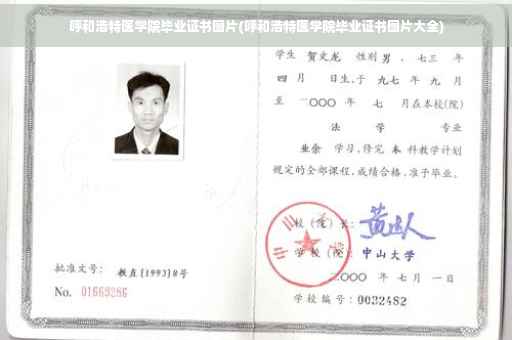 呼和浩特医学院毕业证书图片(呼和浩特医学院毕业证书图片大全)
学生 贺文龙 性别 男 、七三 年
四 月 日生,于 九七 年 九 月
至 二〇〇〇 年 七 月在本校(院)
法 学 专业
业余 学习,修完 本 科教学计划
规定的全部课程,成绩合格,准予毕业。
校 (院) 长:
学 校 (院): 中山大学
二〇〇〇 年 七 月 一 日
学校编号: 0032482
批准文号: 教直(1993)8号
No. 01669286